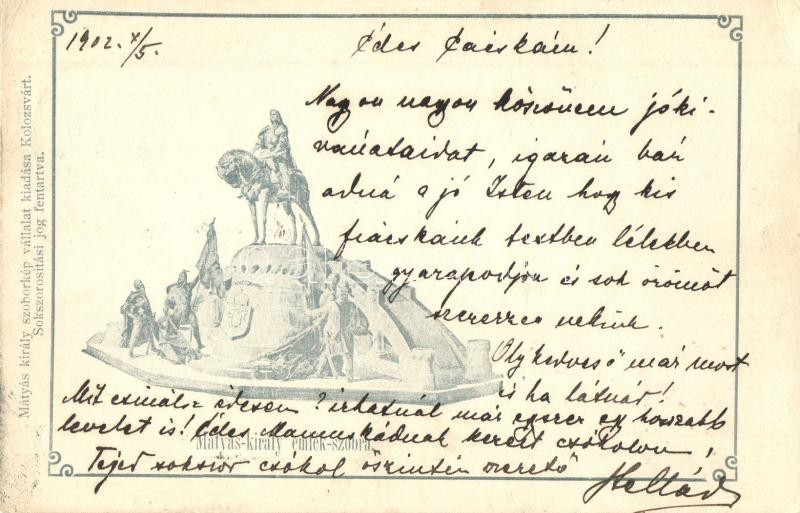 1902. X/5.
Édes Cácskám!
Nagyon nagyon köszönöm jóki-
vánataidat, igazán bár
adná a jó Isten hogy kis
fiácskánk testben lélekben
gyarapodjon és sok örömöt
szerezzen nekünk.
Oly kedves ő már most
is ha látnád!
Mit csinálsz édesem? irhatnál már egyszer egy hosszabb
levelet is! Édes Mamuskádnak kezeit csókolom,
Téged sokszor csókol őszintén szerető
Mátyás-király emlék-szobra.
Mátyás király szoborkép vállalat kiadása Kolozsvárt.
Sokszorosítási jog fentartva.